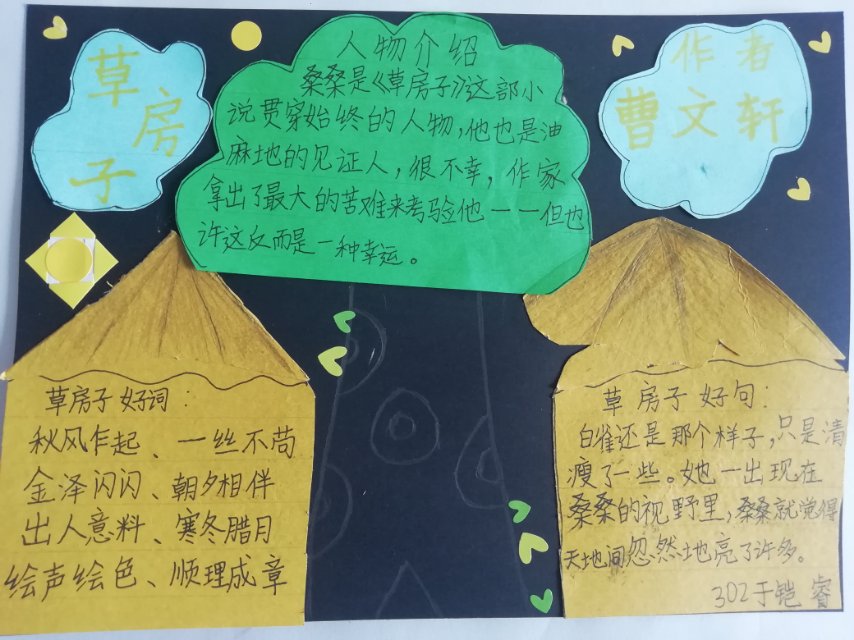 草房子
人物介绍
桑桑是《草房子》这部小
说贯穿始终的人物，他也是油
麻地的见证人，很不幸，作家
拿出了最大的苦难来考验他一一但也
许这反而是一种幸运。
作者
曹文轩
草房子好词：
秋风乍起、一丝不苟
金泽闪闪、朝夕相伴
出人意料、寒冬腊月
绘声绘色、顺理成章
草房子好句：
白雀还是那个样子，只是清
瘦了一些。她一出现在
桑桑的视野里，桑桑就觉得
天地间忽然地亮了许多。
302于铠睿